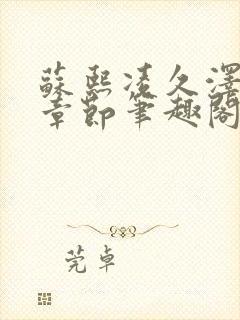 蘇熙凌久澤
章節筆趣閣
莞卓